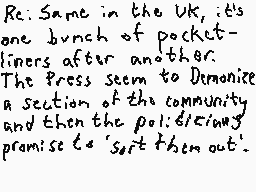 Re: Same in the UK, it's
one bunch of pocket-
liners after another.
The Press seem to Demonize
a section of the community
and then the politicians
promise to 'sort them out'.